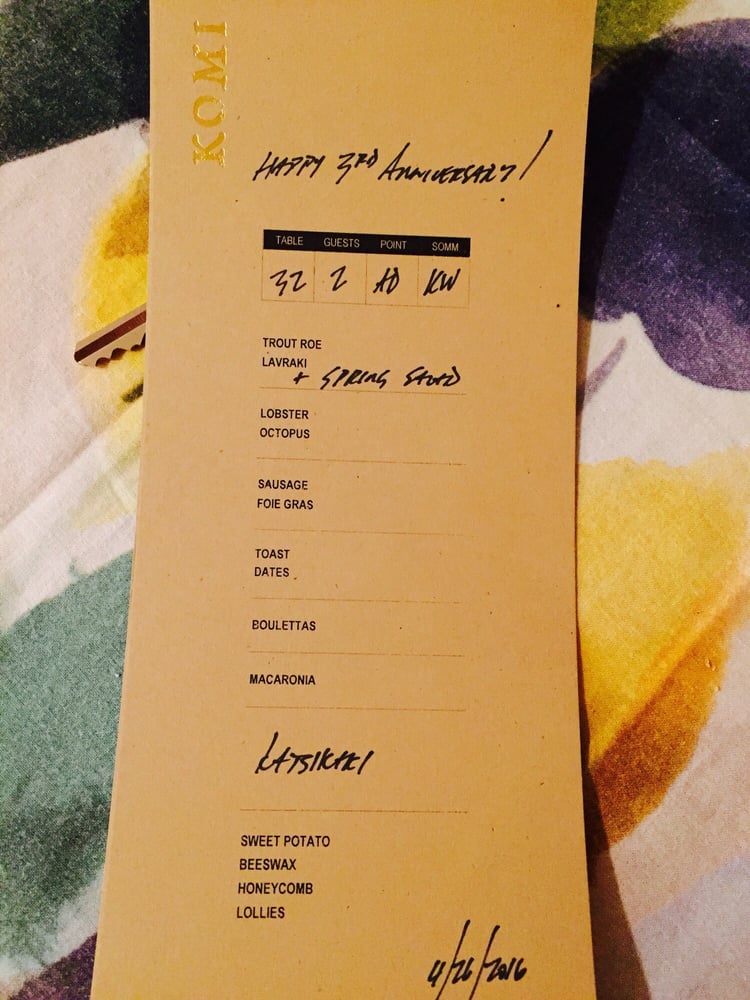 KOMI
HAPPY 3RD ANNIVERSARY!
TABLE GUESTS POINT SOMM
32 2 AD KW
TROUT ROE
LAVRAKI
+ SPRING SALAD
LOBSTER
OCTOPUS
SAUSAGE
FOIE GRAS
TOAST
DATES
BOULETTAS
MACARONIA
KATSIKAKI
SWEET POTATO
BEESWAX
HONEYCOMB
LOLLIES
4/26/2016